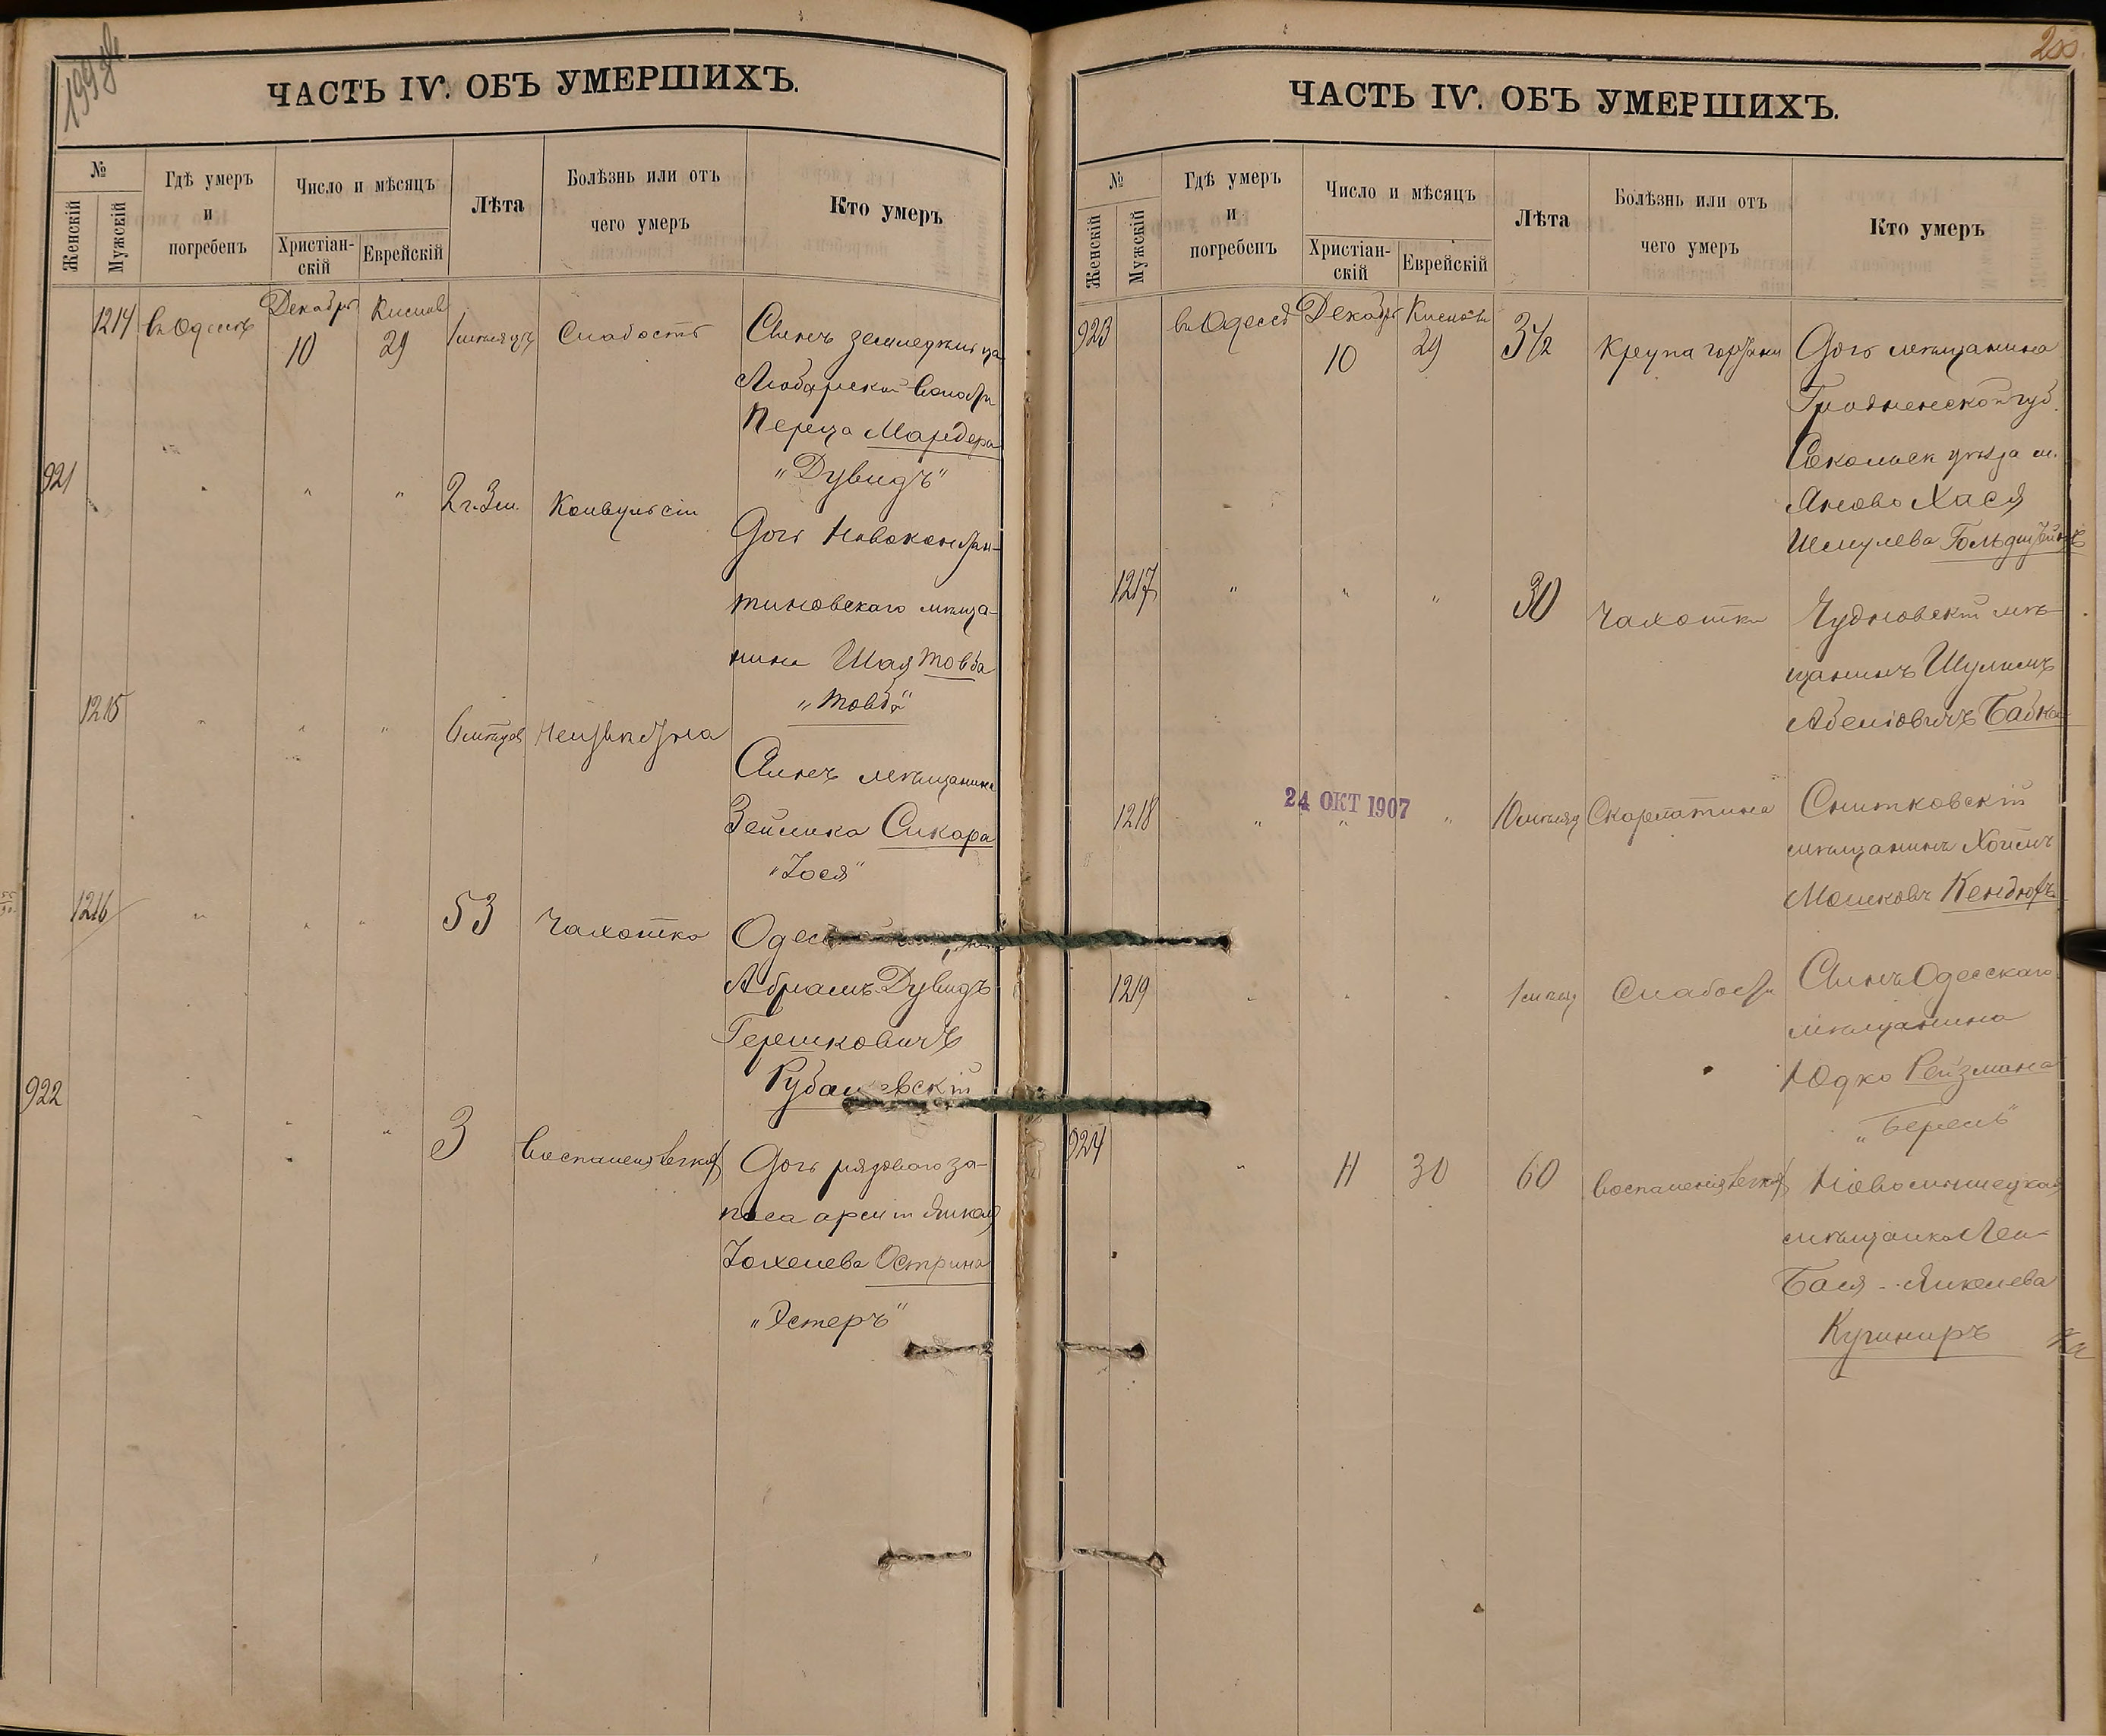 199
ЧАСТЬ IV. ОБЪ УМЕРШИХЪ.
№
Женскій
Мужскій
Гдѣ умеръ
и
погребенъ
Число и мѣсяцъ
Христіан-
скій
Еврейскій
Лѣта
Болѣзнь или отъ
чего умеръ
Кто умеръ
1214 въ Одессѣ Декабрь 10 Кислев 29 1 мѣсяцъ Слабость Сынъ земледѣльца
Любарской Волости
Переца Мардера
"Дувидъ"
921 " " " 2 г. 3 м. Конвульсіи Дочь Новоконстан-
тиновскаго мѣща-
нина Шая Товба
"Товба"
1215 " " " 6 Сынъ мѣщанина
Зейлика Сикара
"Іося"
1216 " " " 53 Чахотка
Абрамъ Дувидъ
Гершковичъ
922 " " " 3 Воспаленія легкихъ Дочь рядового за-
паса арміи Янкеля
Іохелева Острина
"Эстеръ"
200.
ЧАСТЬ IV. ОБЪ УМЕРШИХЪ.
№
Женскій
Мужскій
Гдѣ умеръ
и
погребенъ
Число и мѣсяцъ
Христіан-
скій
Еврейскій
Лѣта
Болѣзнь или отъ
чего умеръ
Кто умеръ
923 въ Одессѣ Декабрь 10 Кислевъ 29 3½ Крупа гортани Дочь мѣщанина
Гродненской губ.
Сокольск уѣзда м.
Яново Хася
Шмулева Гольдштейнъ
1217 " " " 30 Чахотка Чудновскій мѣ-
щанинъ Шулимъ
Абелювичъ Бабка
24 ОКТ 1907
1218 " " " 10 мѣсяц Скарлатина Снитковскій
мѣщанинъ Хоимъ
Мошковъ
1219 " " " 1 мѣсяц Слабость Сынъ Одесскаго
мѣщанина
Юдко Рейзмана
"Берель"
924 " 11 30 60 Воспаленія легкихъ
мѣщанка Леа-
Бася - Янкелева
Кушниръ